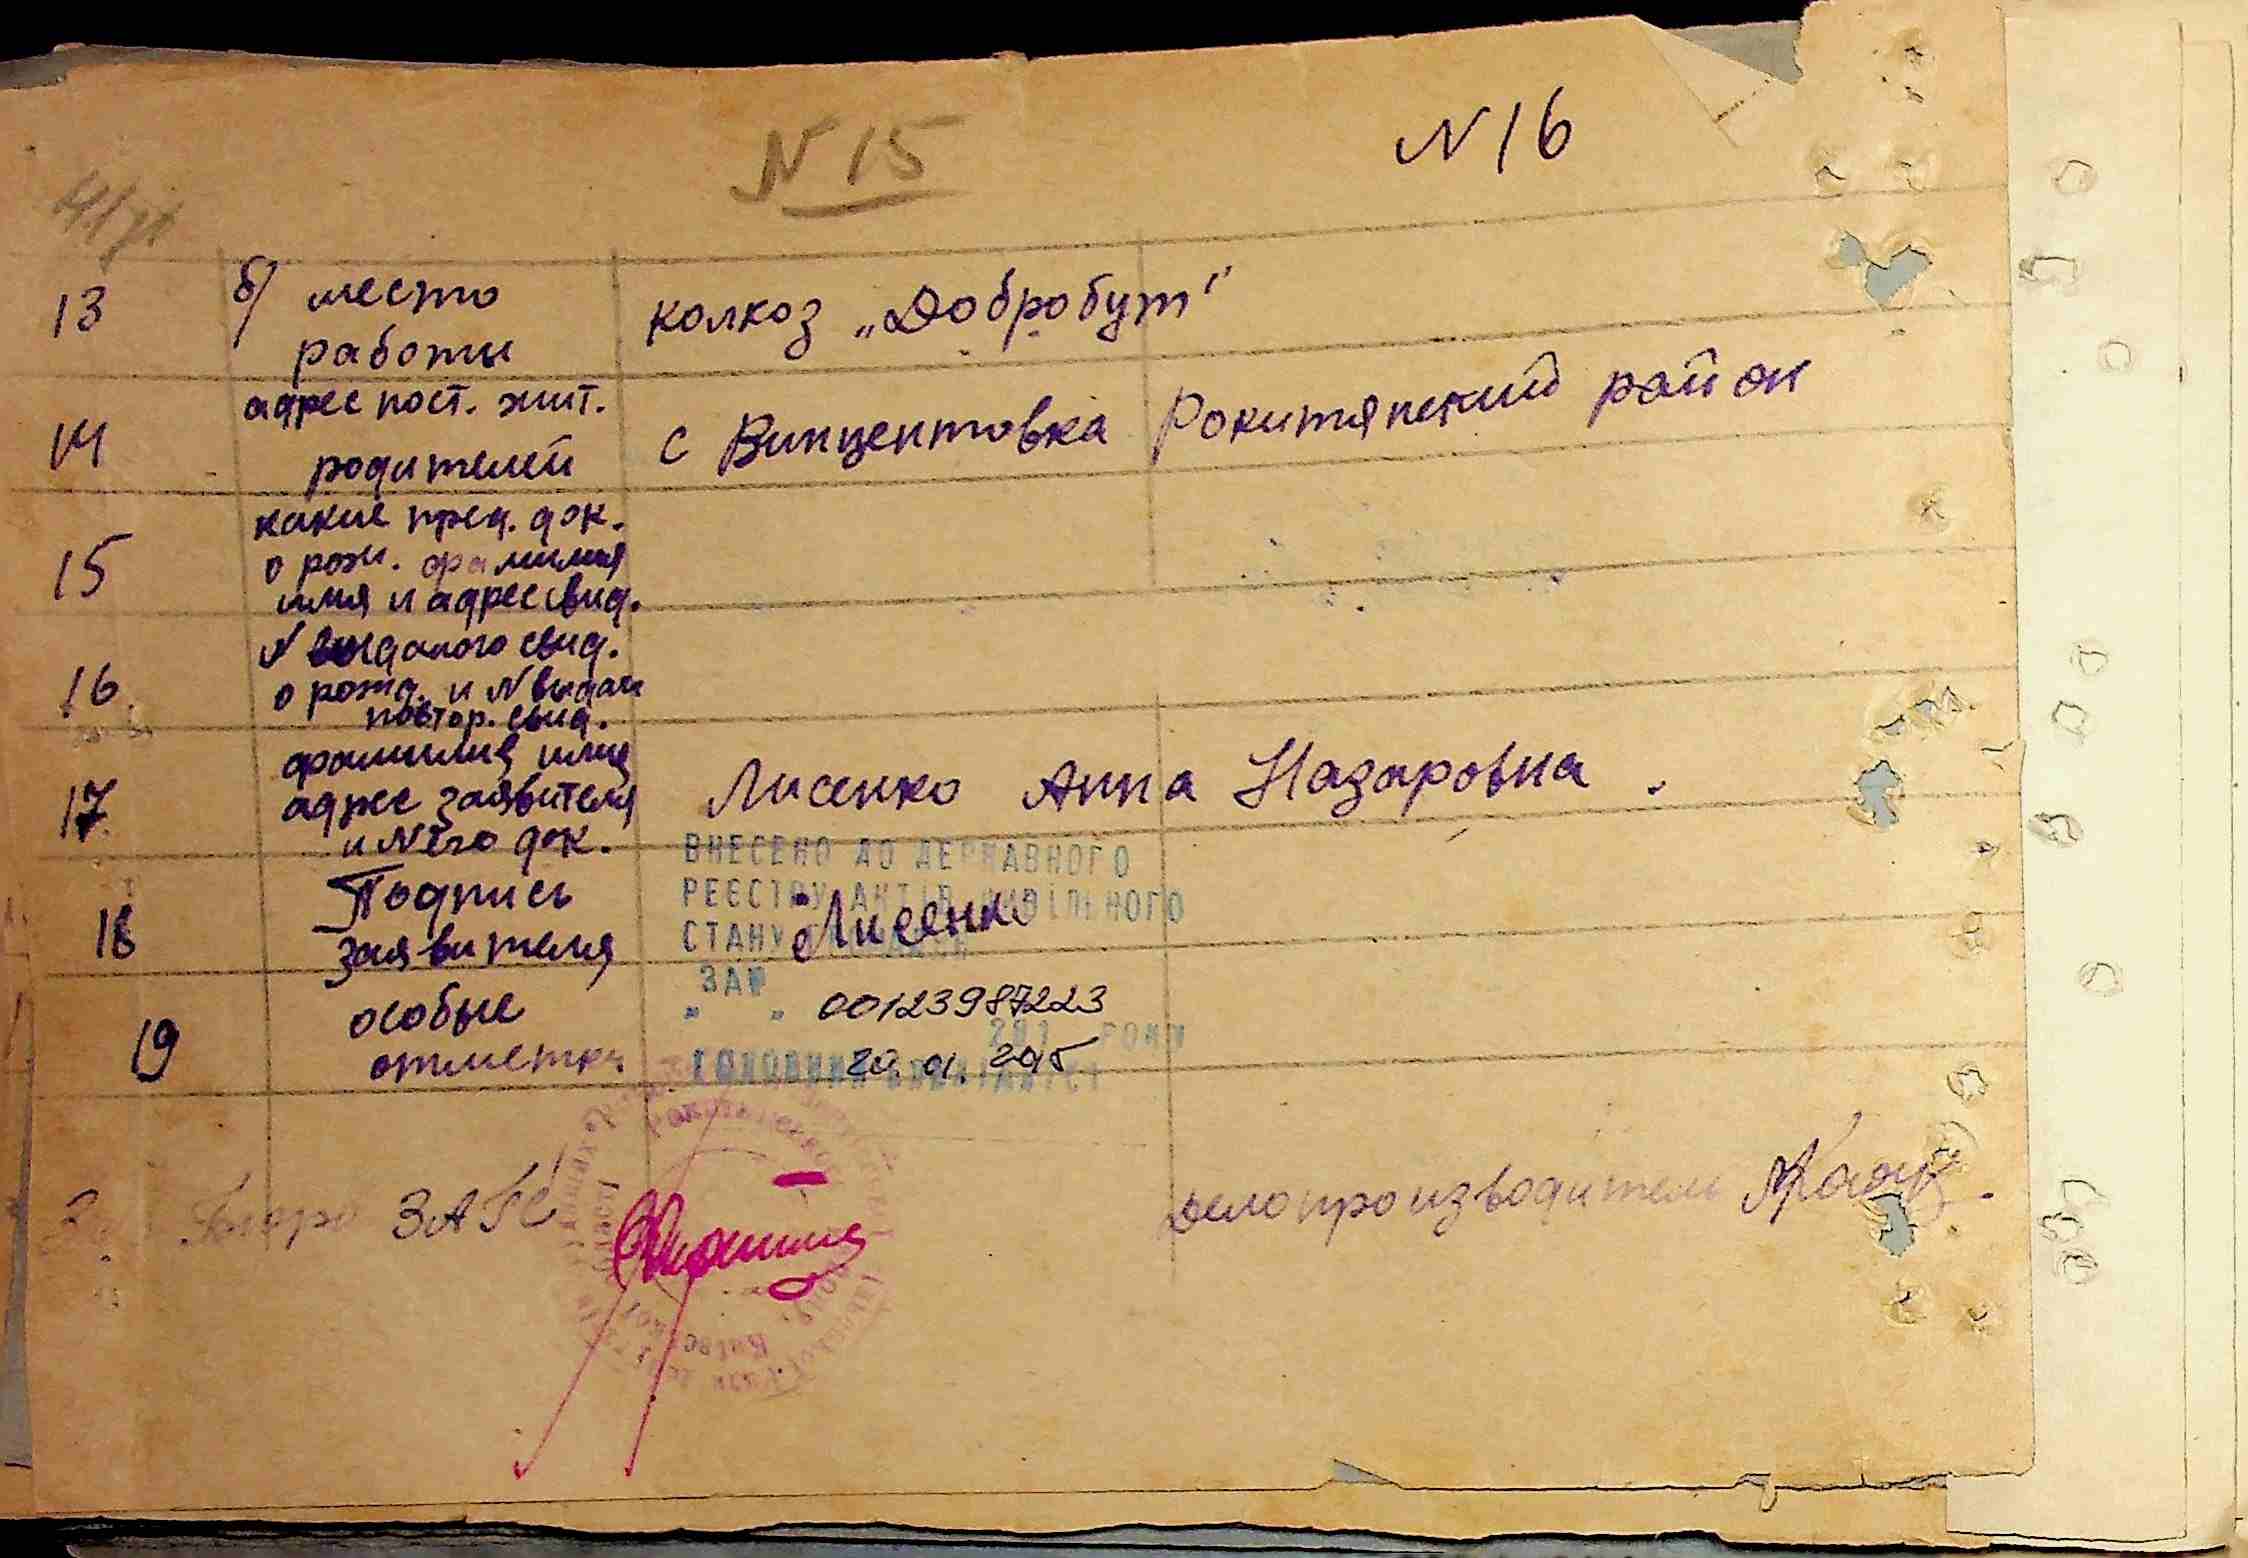 N 15
N 16
13
б/ место
работы
колхоз „Добробут"
14
адрес пост. жит.
родителей
с Винцентовка Рокитянский район
15
какие пред. док.
о рож. фамилия
имя и адрес свид.
16
N выданого свид.
о рожд. и N выдан
повтор. свид.
17
фамилия имя
адрес заявителя
и N его док.
Лисенко Анна Назаровна.
18
Подпись
заявителя
Лисенко
ВНЕСЕНО ДО ДЕРЖАВНОГО
РЕЄСТРУ АКТІВ ЦИВІЛЬНОГО
СТАНУ
ЗА №
19
особые
отметки.
00123987223
201 РОКУ
20.01.2015
ГОЛОВНИЙ СПЕЦІАЛІСТ
Бюро ЗАГС
делопроизводитель